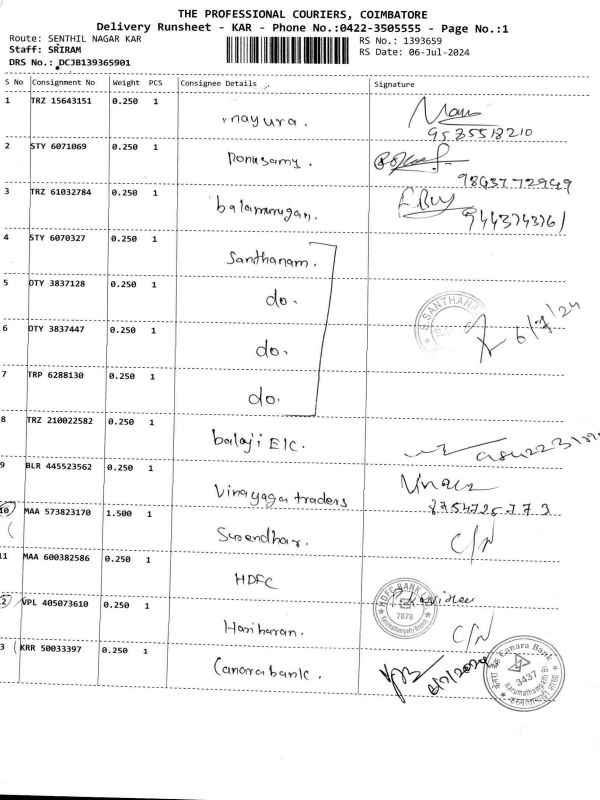 THE PROFESSIONAL COURIERS, COIMBATORE
Delivery Runsheet - KAR - Phone No.:0422-3505555 - Page No.:1
Route: SENTHIL NAGAR KAR
Staff: SRIRAM
DRS No.: DCJB139365901
RS No.: 1393659
RS Date: 06-Jul-2024
S No Consignment No Weight PCS Consignee Details Signature
1 TRZ 15643151 0.250 1 mayura.
9535518210
2 STY 6071069 0.250 1 Ponusamy.
3 TRZ 61032784 0.250 1 balamurugan.
4 STY 6070327 0.250 1 Santhanam.
5 OTY 3837128 0.250 1 do.
6 OTY 3837447 0.250 1 do. 6/7/24
7 TRP 6288130 0.250 1 do.
8 TRZ 210022582 0.250 1 balaji Elc.
9 BLR 445523562 0.250 1 Vinayaga traders
8754725773
10 MAA 573823170 1.500 1 Surendhar. C/N
11 MAA 600382586 0.250 1 HDFC
HDFC BANK
7076
Karumathampatti Branch
12 VPL 405073610 0.250 1 Hariharan. C/N
3 KRR 50033397 0.250 1 Canara bank.
Canara Bank
3437
Karumathampatti Br